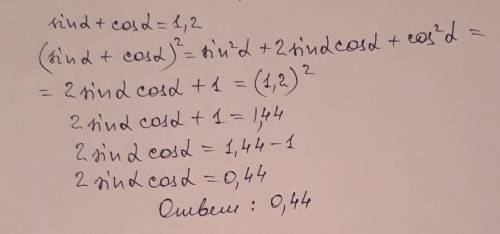 sinα + cosα = 1,2
(sinα + cosα)² = sin²α + 2sinαcosα + cos²α =
= 2sinαcosα + 1 = (1,2)²
2sinαcosα + 1 = 1,44
2sinαcosα = 1,44 - 1
2sinαcosα = 0,44
Ответ: 0,44